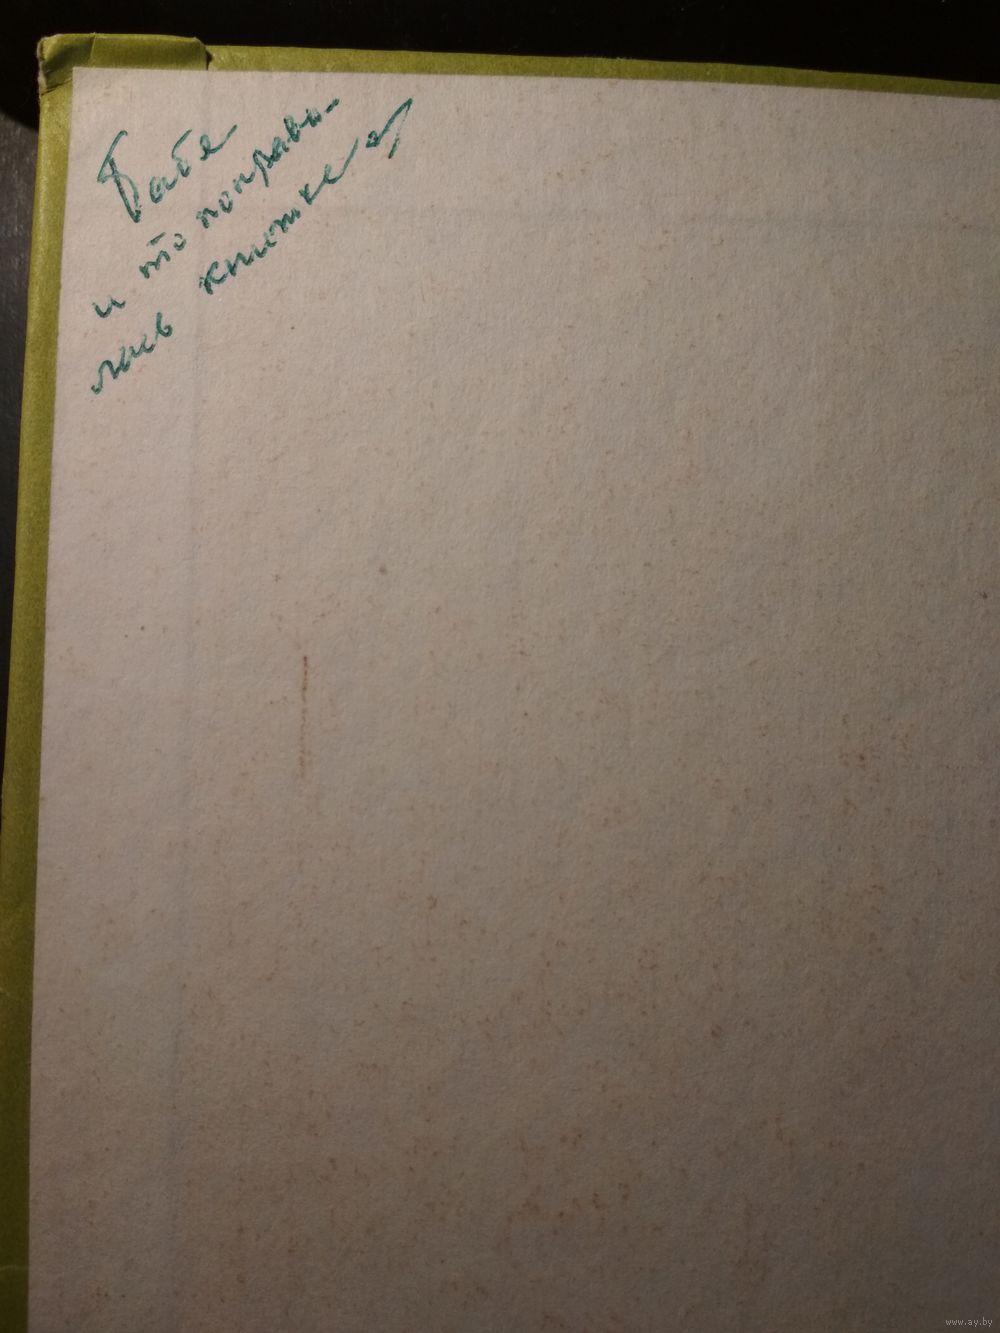 Бабе
и то понрави-
лась книжка
www.ay.by